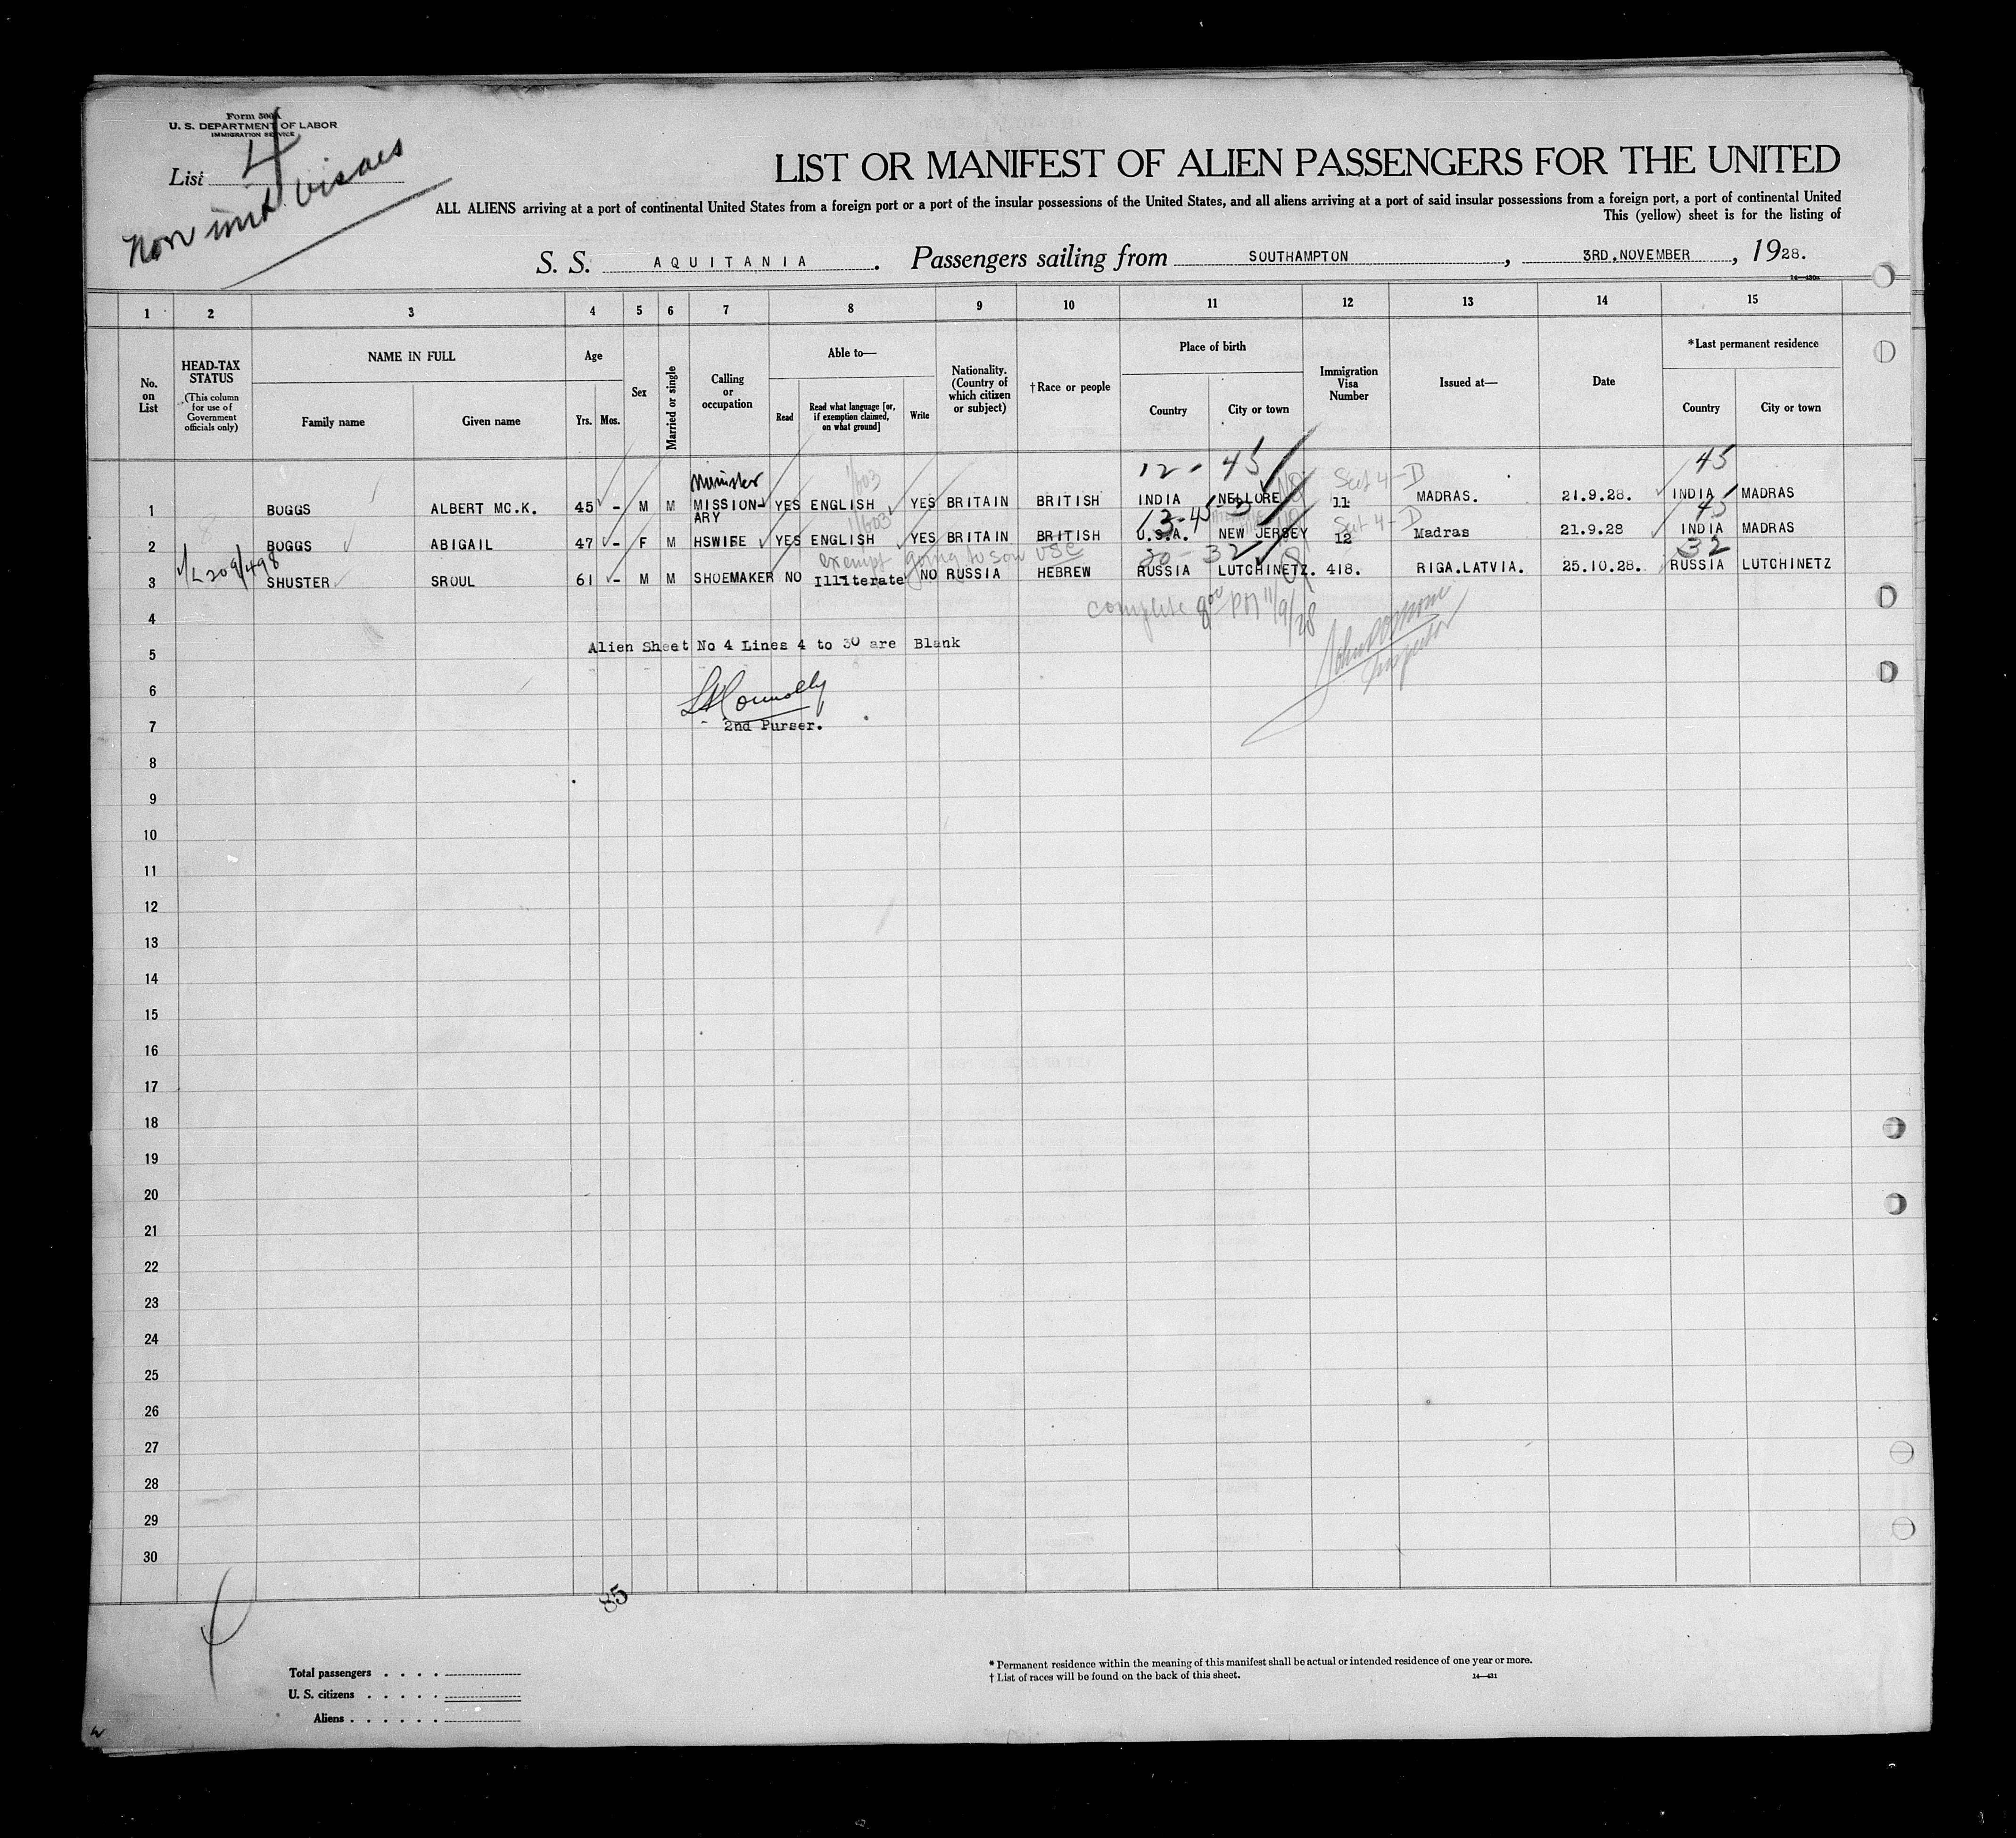 Form 500A
U. S. DEPARTMENT OF LABOR
IMMIGRATION SERVICE
List 4
non imt visaes
LIST OR MANIFEST OF ALIEN PASSENGERS FOR THE UNITED
ALL ALIENS arriving at a port of continental United States from a foreign port or a port of the insular possessions of the United States, and all aliens arriving at a port of said insular possessions from a foreign port, a port of continental United
This (yellow) sheet is for the listing of
S. S. AQUITANIA. Passengers sailing from SOUTHAMPTON, 3RD.NOVEMBER, 1928.
1 2 3 4 5 6 7 8 9 10 11 12 13 14 15
No. on List
HEAD-TAX STATUS
(This column for use of Government officials only)
NAME IN FULL
Family name Given name
Age
Yrs. Mos.
Sex
Married or single
Calling or occupation
Able to—
Read
Read what language [or, if exemption claimed, on what ground]
Write
Nationality. (Country of which citizen or subject)
†Race or people
Place of birth
Country City or town
Immigration Visa Number
Issued at—
Date
*Last permanent residence
Country City or town
minister 12 - 45 Sect 4-D 45
1 BOGGS ALBERT MC.K. 45 - M M MISSION-ARY YES ENGLISH YES BRITAIN BRITISH INDIA NELLORE 11 MADRAS. 21.9.28. INDIA MADRAS
Sect 4-D 45
2 BOGGS ABIGAIL 47 - F M HSWIFE YES ENGLISH YES BRITAIN BRITISH U.S.A. NEW JERSEY 12 Madras 21.9.28 INDIA MADRAS
L209/498 exempt going to son USC 20 - 32 32
3 SHUSTER SROUL 61 - M M SHOEMAKER NO Illiterate NO RUSSIA HEBREW RUSSIA LUTCHINETZ. 418. RIGA.LATVIA. 25.10.28. RUSSIA LUTCHINETZ
4
complete 8 00 PM 11/9/28
5 Alien Sheet No 4 Lines 4 to 30 are Blank
Inspector
6
Connolly
7 2nd Purser.
8
9
10
11
12
13
14
15
16
17
18
19
20
21
22
23
24
25
26
27
28
29
30
85
Total passengers . . . .
U. S. citizens . . . . .
Aliens . . . . . .
* Permanent residence within the meaning of this manifest shall be actual or intended residence of one year or more.
† List of races will be found on the back of this sheet.
14—431